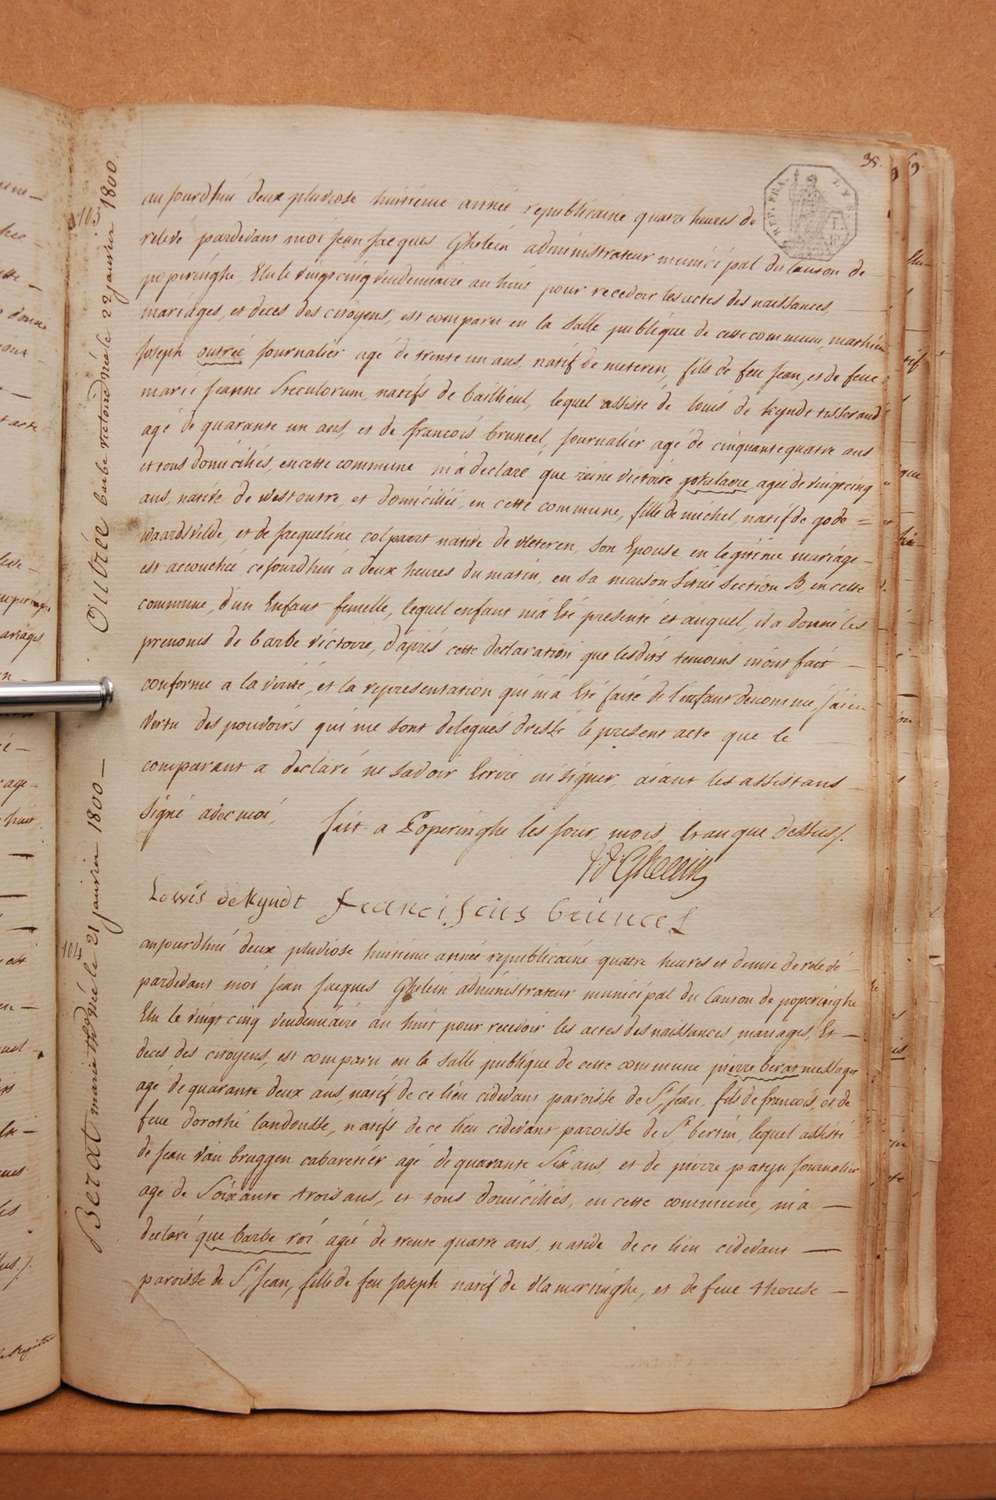 38.
REP. FRA.
103
Outrée barbe victoire née le 22 janvier 1800
aujourdhui deux pluviose huitieme année republicaine quatre heures de
relevé pardevant moi jean jacques Ghelein administrateur municipal du Canton de
poperinghe, Elu le vingt cinq vendemiaire an huit pour recevoir les actes des naissances,
mariages, et deces des citoyens, est comparu en la salle publique de cette commune, mathieu
joseph outreé journalier agé de trente un ans, natif de meteren, fils de feu jean, et de feue
marie jeanne Seculorum, natifs de bailleul, lequel assisté de louis de Kyndt tisserand
agé de quarante un ans, et de francois bruneel, journalier agé de cinquante quatre ans
et tous domiciliés, en cette commune m'a declaré que reine victoire agée de vingt cinq
ans, native de westoutre, et domiciliée, en cette commune, fille de michel, natif de gode =
waardsvelde, et de jacqueline colpaert native de meteren, son Epouse en legitime mariage —
est accouchée cejourdhui a deux heures du matin, en sa maison située section B, en cette
commune, d'un Enfant femelle, lequel enfant m'a Eté presenté et auquel il a donné les
prenoms de barbe victoire, d'aprés cette declaration que lesdits temoins m'ont fait —
conforme a la verité, et la representation qui m'a Eté faite de l'enfant denommé j'ai en
vertu des pouvoirs qui me sont delegués dressé le present acte que le
comparant a declaré ne savoir Ecrire ni signer, aiant les assistans
signé avec moi,
fait a Poperinghe les jour, mois Et an que dessus /.
J J Ghelein
Lowis de Kyndt franciscus bruneel
104
Berat marie née le 21 janvier 1800 —
aujourdhui deux pluviose huitieme année republicaine quatre heures et demie de relevé —
pardevant moi jean jacques Ghelein administrateur municipal du Canton de poperinghe
Elu le vingt cinq vendemiaire an huit pour recevoir les actes des naissances, mariages, Et —
deces des citoyens, est comparu en la salle publique de cette commune pierre berat messager
agé de quarante deux ans, natif de ce lieu cidevant paroisse de St jean, fils de francois, et de
feue dorothé landousse, natifs de ce lieu cidevant paroisse de St bertin, lequel assisté
de jean van bruggen cabaretier agé de quarante Six ans et de pierre journalier
agé de Soixante trois ans, et tous domiciliés, en cette commune, m'a —
declaré que barbe roi agée de trente quatre ans, native de ce lieu cidevant —
paroisse de St jean, fille de feu joseph natif de vlamertinghe, et de feue therese —